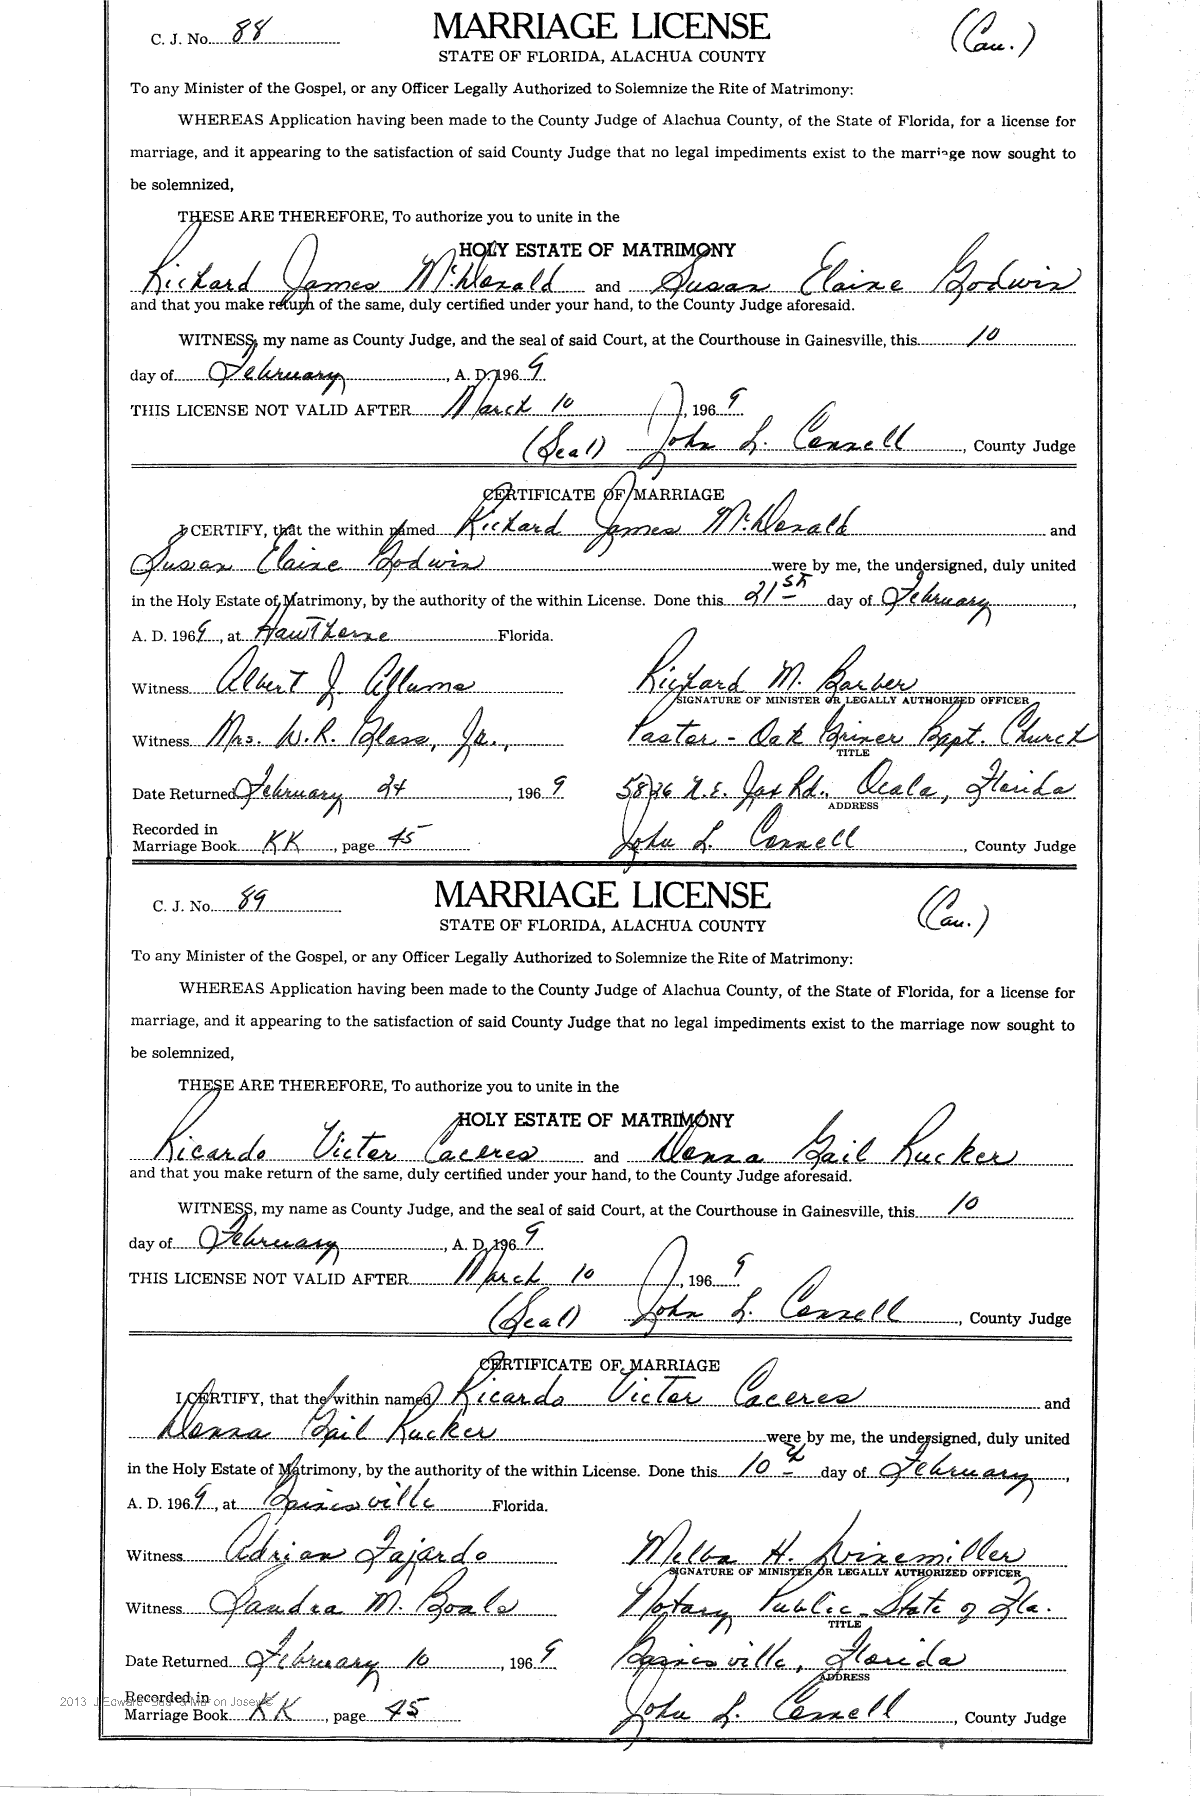 C. J. No. 88
MARRIAGE LICENSE
(Cau.)
STATE OF FLORIDA, ALACHUA COUNTY
To any Minister of the Gospel, or any Officer Legally Authorized to Solemnize the Rite of Matrimony:
WHEREAS Application having been made to the County Judge of Alachua County, of the State of Florida, for a license for
marriage, and it appearing to the satisfaction of said County Judge that no legal impediments exist to the marriage now sought to
be solemnized,
THESE ARE THEREFORE, To authorize you to unite in the
HOLY ESTATE OF MATRIMONY
Richard James McDonald and Susan Elaine Godwin
and that you make return of the same, duly certified under your hand, to the County Judge aforesaid.
WITNESS, my name as County Judge, and the seal of said Court, at the Courthouse in Gainesville, this 10
day of February, A. D. 1969
THIS LICENSE NOT VALID AFTER March 10, 1969
(Seal) John L. Connell, County Judge
CERTIFICATE OF MARRIAGE
I CERTIFY, that the within named Richard James McDonald and
Susan Elaine Godwin were by me, the undersigned, duly united
in the Holy Estate of Matrimony, by the authority of the within License. Done this 21st day of February,
A. D. 1969, at Hawthorne Florida.
Witness Albert J. Allums Richard M. Barber
SIGNATURE OF MINISTER OR LEGALLY AUTHORIZED OFFICER
Witness Mrs. W. R. Glass, Jr., Pastor - Oak Griner Bapt. Church
TITLE
Date Returned February 24, 1969 5826 N.E. Jax Rd., Ocala, Florida
ADDRESS
Recorded in
Marriage Book KK, page 45 John L. Connell, County Judge
C. J. No. 89
MARRIAGE LICENSE
(Cau.)
STATE OF FLORIDA, ALACHUA COUNTY
To any Minister of the Gospel, or any Officer Legally Authorized to Solemnize the Rite of Matrimony:
WHEREAS Application having been made to the County Judge of Alachua County, of the State of Florida, for a license for
marriage, and it appearing to the satisfaction of said County Judge that no legal impediments exist to the marriage now sought to
be solemnized,
THESE ARE THEREFORE, To authorize you to unite in the
HOLY ESTATE OF MATRIMONY
Ricardo Victor Caceres and Donna Gail Rucker
and that you make return of the same, duly certified under your hand, to the County Judge aforesaid.
WITNESS, my name as County Judge, and the seal of said Court, at the Courthouse in Gainesville, this 10
day of February, A. D. 1969
THIS LICENSE NOT VALID AFTER March 10, 1969
(Seal) John L. Connell, County Judge
CERTIFICATE OF MARRIAGE
I CERTIFY, that the within named Ricardo Victor Caceres and
Donna Gail Rucker were by me, the undersigned, duly united
in the Holy Estate of Matrimony, by the authority of the within License. Done this 10th day of February,
A. D. 1969, at Gainesville Florida.
Witness Adrian Fajardo Melba H. Winemiller
SIGNATURE OF MINISTER OR LEGALLY AUTHORIZED OFFICER
Witness Sandra M. Boals Notary Public - State of Fla.
TITLE
Date Returned February 10, 1969 Gainesville, Florida
ADDRESS
Recorded in
Marriage Book KK, page 45 John L. Connell, County Judge